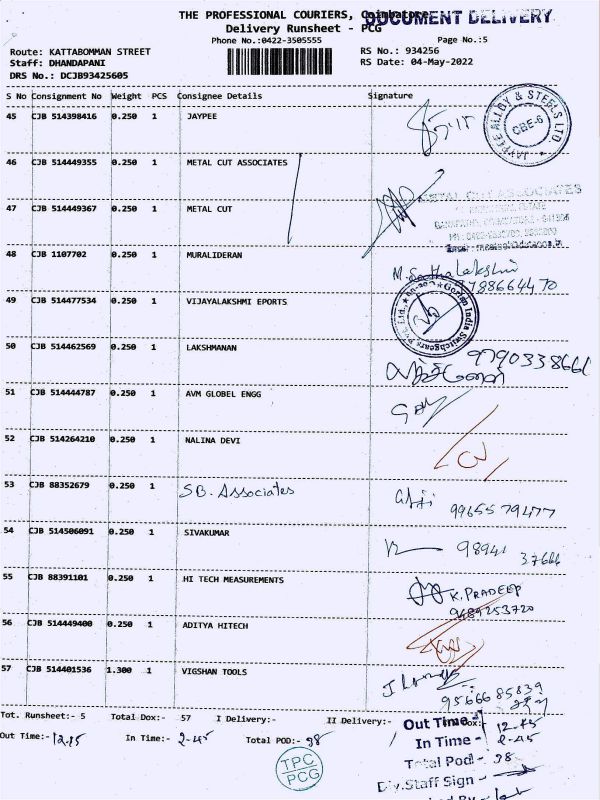 THE PROFESSIONAL COURIERS, Coimbatore
DOCUMENT DELIVERY
Delivery Runsheet - PCG
Phone No.:0422-3505555
Page No.:5
Route: KATTABOMMAN STREET
RS No.: 934256
Staff: DHANDAPANI
RS Date: 04-May-2022
DRS No.: DCJB93425605
S No Consignment No Weight PCS Consignee Details Signature
45 CJB 514398416 0.250 1 JAYPEE
JAYPEE ALLOY & STEELS LTD
CBE-6
46 CJB 514449355 0.250 1 METAL CUT ASSOCIATES
METAL CUT ASSOCIATES
47 CJB 514449367 0.250 1 METAL CUT
48 CJB 1107702 0.250 1 MURALIDERAN
7788664470
49 CJB 514477534 0.250 1 VIJAYALAKSHMI EPORTS
India Switchgears Pvt. Ltd.,
50 CJB 514462569 0.250 1 LAKSHMANAN
9790338666
51 CJB 514444787 0.250 1 AVM GLOBEL ENGG
52 CJB 514264210 0.250 1 NALINA DEVI
53 CJB 88352679 0.250 1 SB. Associates
99655 79477
54 CJB 514506091 0.250 1 SIVAKUMAR
98941 37666
55 CJB 88391101 0.250 1 HI TECH MEASUREMENTS
K. PRADEEP
9489253720
56 CJB 514449400 0.250 1 ADITYA HITECH
57 CJB 514401536 1.300 1 VIGSHAN TOOLS
9566685839
Tot. Runsheet:- 5 Total Dox:- 57 I Delivery:- II Delivery:-
Out Time:- 12.15 In Time:- 2-45 Total POD:- 98
Out Time - 12-15
In Time - 2-45
Total Pod - 98
TPC
PCG
Dly.Staff Sign -